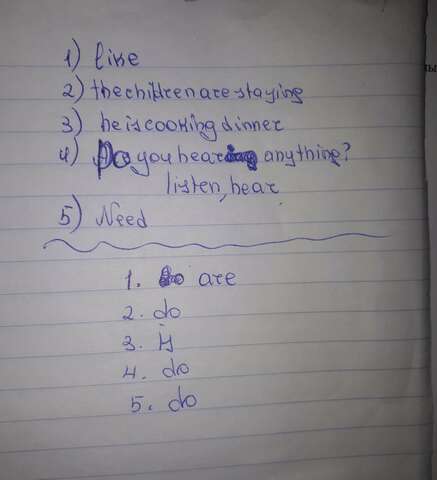 1) like
2) the children are staying
3) he is cooking dinner
4) Do you hear anything?
listen, hear
5) Need
1. are
2. do
3. is
4. do
5. do